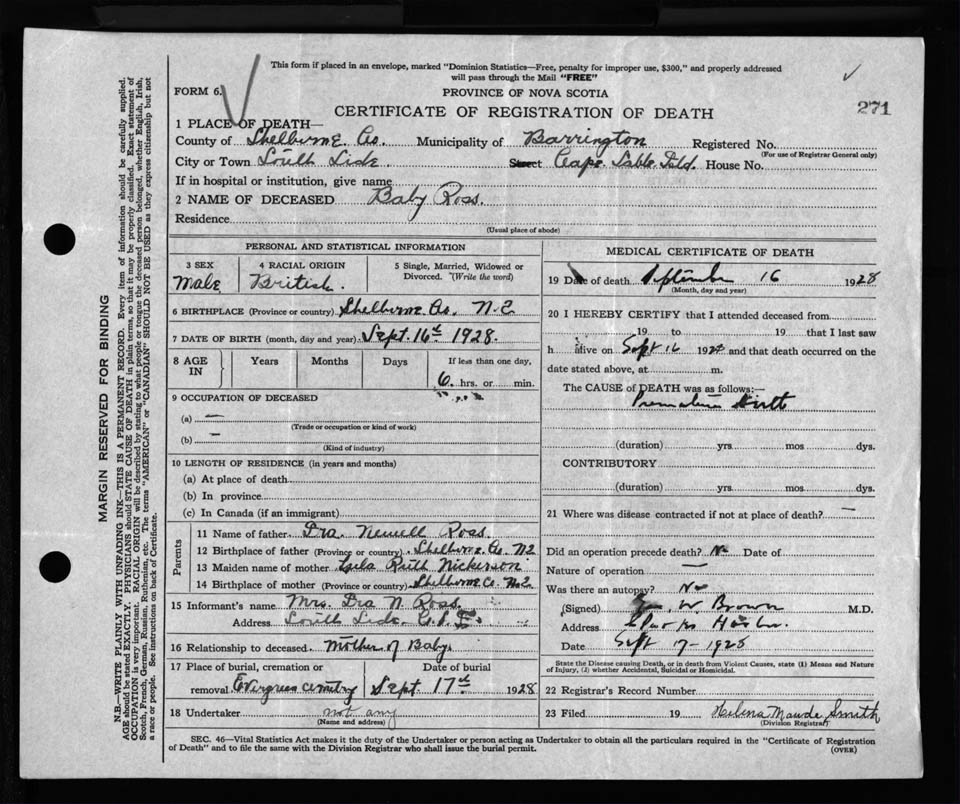 This form if placed in an envelope, marked "Dominion Statistics—Free, penalty for improper use, $300," and properly addressed
will pass through the Mail "FREE"
FORM 6.
PROVINCE OF NOVA SCOTIA
CERTIFICATE OF REGISTRATION OF DEATH
271
1 PLACE OF DEATH—
County of Shelburne Co. Municipality of Barrington Registered No.
(For use of Registrar General only)
City or Town South Side Street Cape Sable Isld. House No.
If in hospital or institution, give name
2 NAME OF DECEASED Baby Ross.
Residence
(Usual place of abode)
PERSONAL AND STATISTICAL INFORMATION
3 SEX
Male
4 RACIAL ORIGIN
British.
5 Single, Married, Widowed or
Divorced. (Write the word)
6 BIRTHPLACE (Province or country) Shelburne Co. N.S.
7 DATE OF BIRTH (month, day and year) Sept. 16th 1928.
8 AGE IN Years Months Days If less than one day,
6 hrs. or min.
9 OCCUPATION OF DECEASED
(a) —
(Trade or occupation or kind of work)
(b) —
(Kind of industry)
10 LENGTH OF RESIDENCE (in years and months)
(a) At place of death
(b) In province
(c) In Canada (if an immigrant)
Parents
11 Name of father Ira Newell Ross.
12 Birthplace of father (Province or country) Shelburne Co. N.S
13 Maiden name of mother Ruth Nickerson
14 Birthplace of mother (Province or country) Shelburne Co N.S.
15 Informant's name Mrs Ira N. Ross.
Address South Side C.S.I.
16 Relationship to deceased mother of Baby
17 Place of burial, cremation or
removal Evergreen cemetry
Date of burial
Sept. 17th 1928
18 Undertaker not any
(Name and address)
MEDICAL CERTIFICATE OF DEATH
19 Date of death September 16 1928
(Month, day and year)
20 I HEREBY CERTIFY that I attended deceased from
19 to 19 that I last saw
h alive on Sept 16 1928 and that death occurred on the
date stated above, at m.
The CAUSE of DEATH was as follows:—
Premature Birth
(duration) yrs. mos. dys.
CONTRIBUTORY
(duration) yrs. mos. dys.
21 Where was disease contracted if not at place of death? —
Did an operation precede death? No Date of
Nature of operation —
Was there an autopsy? No
(Signed) W. Brown M.D.
Address Clarks Harbor.
Date Sept 17-1928
State the Disease causing Death, or in death from Violent Causes, state (1) Means and Nature
of Injury, (2) whether Accidental, Suicidal or Homicidal.
22 Registrar's Record Number
23 Filed 19 Helena Maude Smith
(Division Registrar)
SEC. 46—Vital Statistics Act makes it the duty of the Undertaker or person acting as Undertaker to obtain all the particulars required in the "Certificate of Registration
of Death" and to file the same with the Division Registrar who shall issue the burial permit.
(OVER)
MARGIN RESERVED FOR BINDING
N.B.—WRITE PLAINLY WITH UNFADING INK—THIS IS A PERMANENT RECORD. Every item of information should be carefully supplied.
AGE should be stated EXACTLY. PHYSICIANS should STATE CAUSE OF DEATH in plain terms, so that it may be properly classified. Exact statement of
OCCUPATION is very important. RACIAL ORIGIN will be described by stating to what people or tongue the deceased person belonged, whether English, Irish,
Scotch, French, German, Russian, Ruthenian, etc. The terms "AMERICAN" or "CANADIAN" SHOULD NOT BE USED as they express citizenship but not
a race or people. See instructions on back of Certificate.